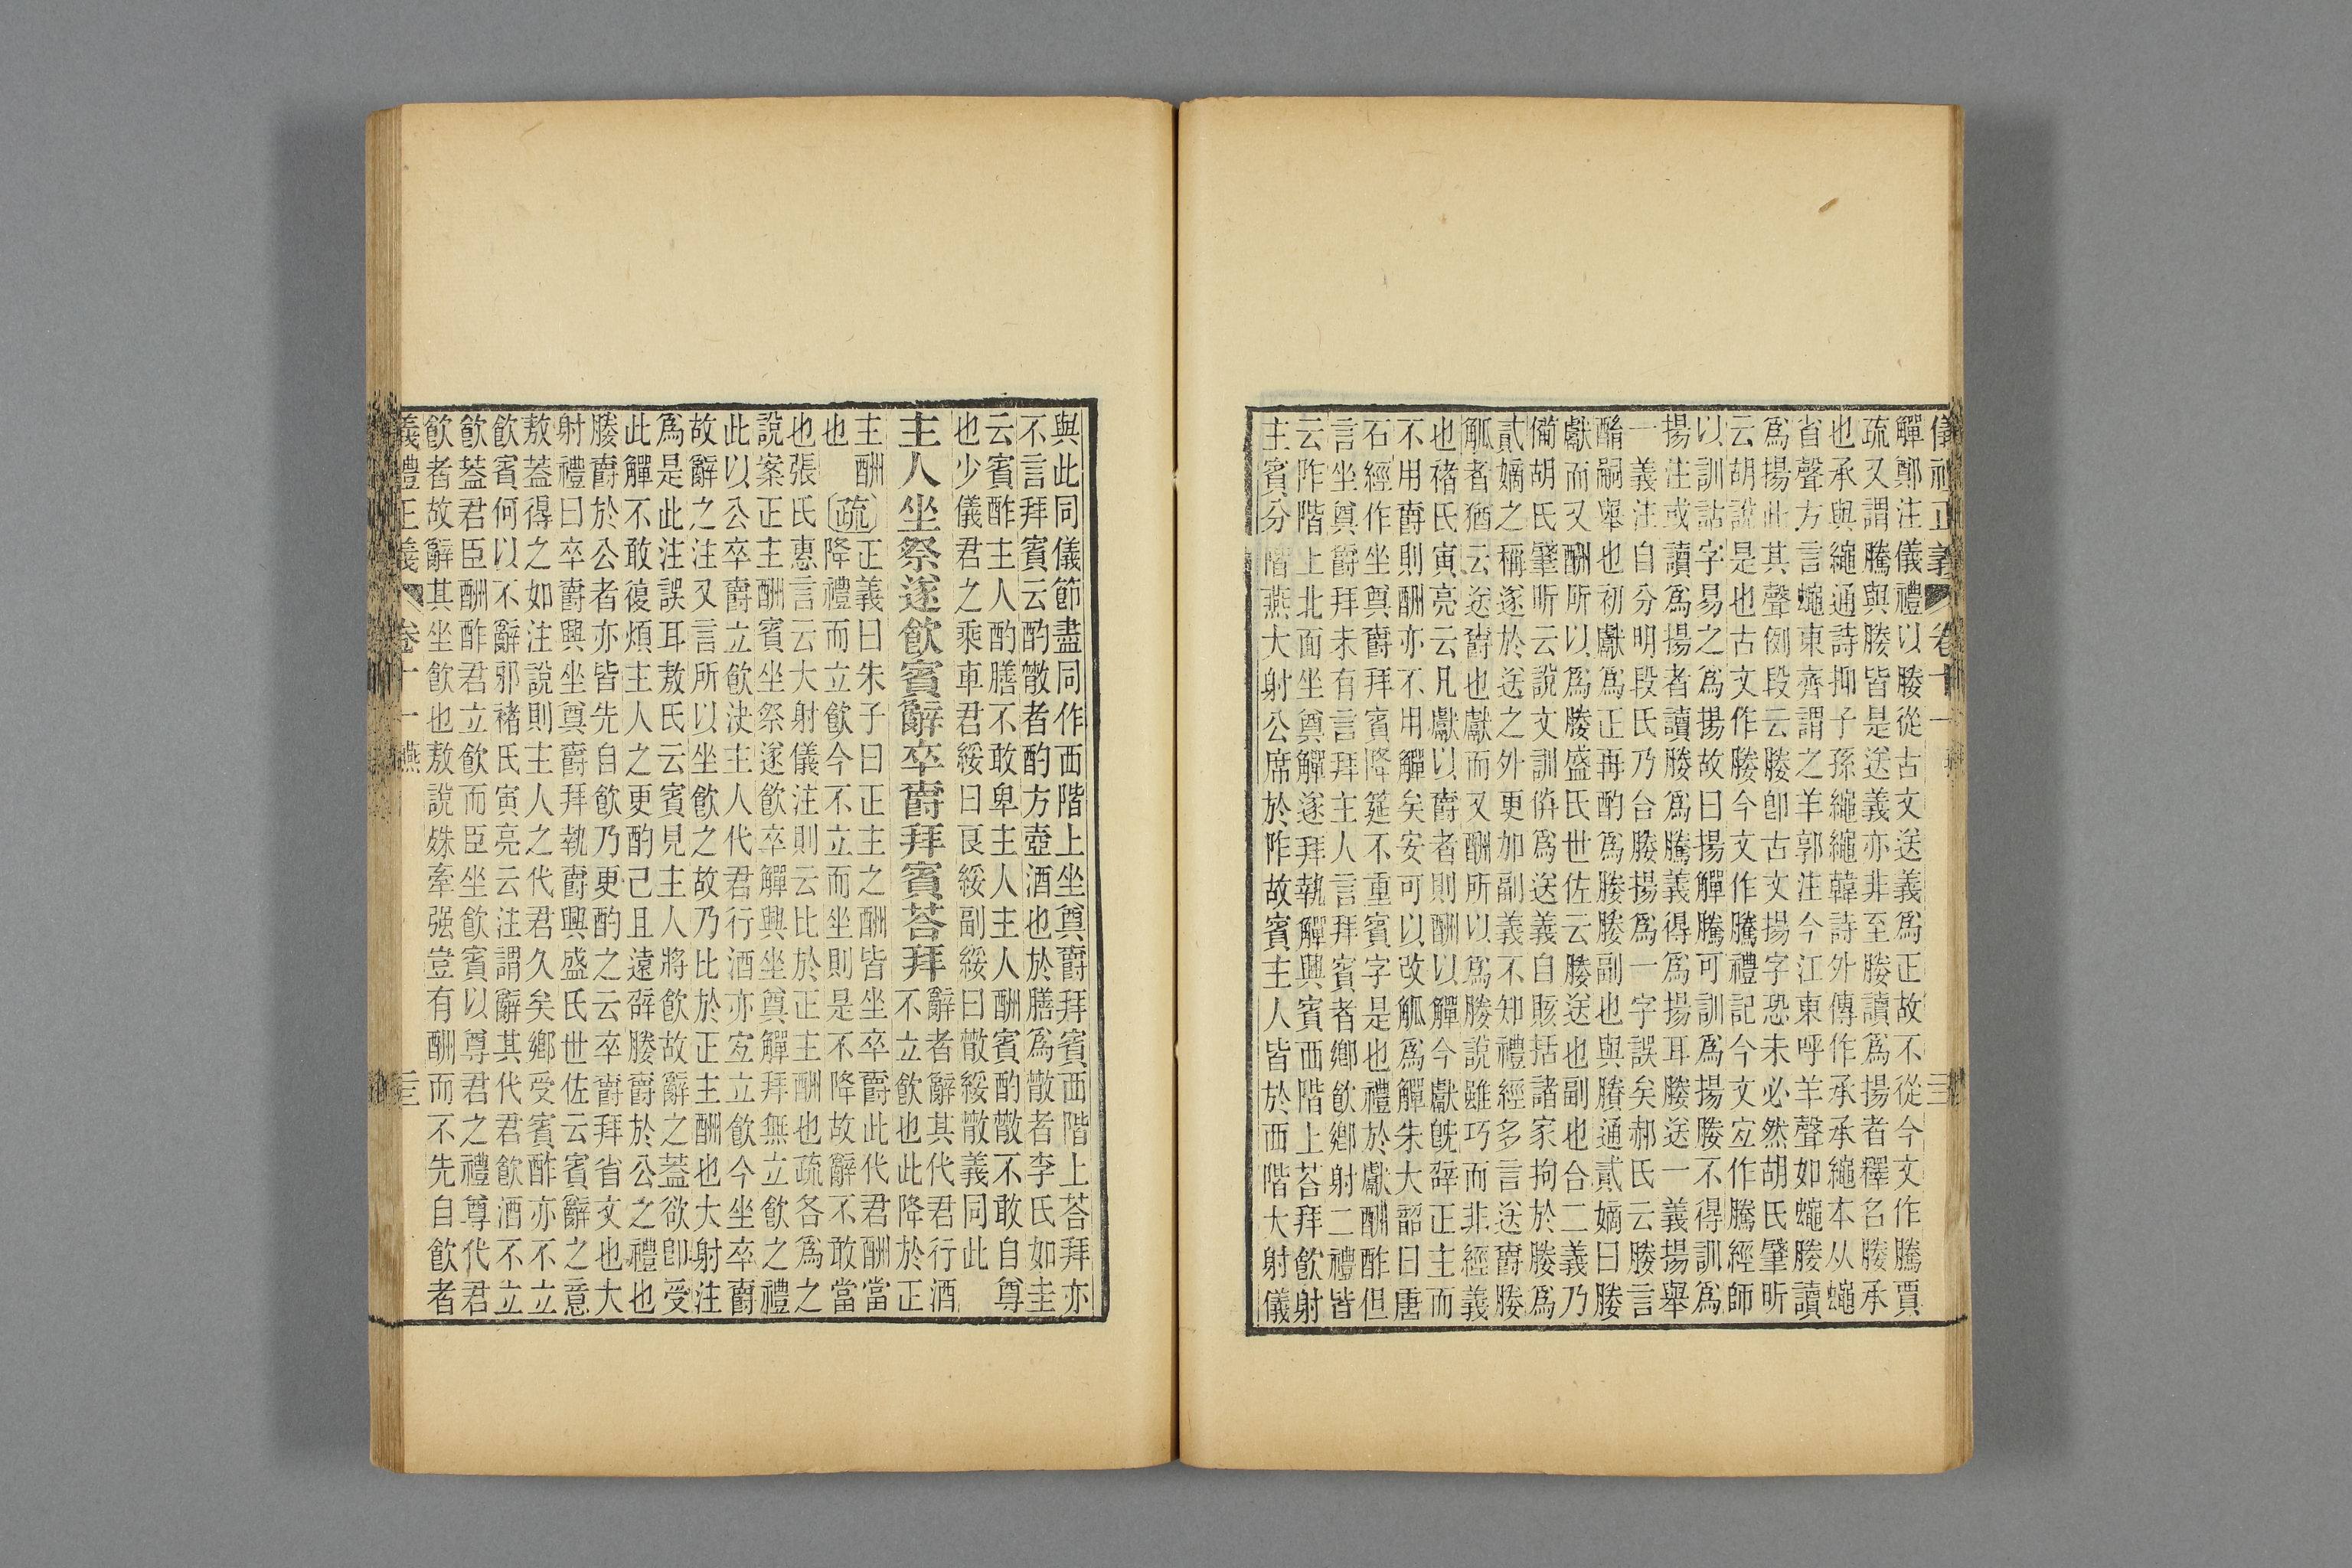 儀禮正義 卷十一 三
觶鄭注儀禮以媵從古文送義爲正故不從今文作騰賈
疏又謂騰與媵皆是送義亦非至媵讀爲揚者釋名媵承
也承與繩通詩抑子孫繩繩韓詩外傳作承承繩本从蠅
省聲方言蠅東齊謂之羊郭注今江東呼羊聲如蠅媵讀
爲揚此其聲例段云媵卽古文揚字恐未必然胡氏肇昕
云胡說是也古文作媵今文作騰禮記今文宐作騰經師
以訓詁字易之爲揚故曰揚觶騰可訓爲揚媵不得訓爲
揚注或讀爲揚者讀媵爲騰義得爲揚耳媵送一義揚舉
一義注自分明段氏乃合媵揚爲一字誤矣郝氏云媵言
酳嗣舉也初獻爲正再酌爲媵媵副也與賸通貳嫡曰媵
獻而又酬所以爲媵盛氏世佐云媵送也副也合二義乃
僃胡氏肇昕云說文訓㑞爲送義自賅括諸家拘於媵爲
貳嫡之稱遂於送之外更加副義不知禮經多言送爵媵
觚者猶云送爵也獻而又酬所以爲媵說雖巧而非經義
也褚氏寅亮云凡獻以爵者則酬以觶今獻旣辟正主而
不用爵則酬亦不用觶矣安可以改觚爲觶朱大韶曰唐
石經作坐奠爵拜賓降筵不重賓字是也禮於獻酬酢但
言坐奠爵拜未有言拜主人言拜賓者鄉飮鄉射二禮皆
云阼階上北面坐奠觶遂拜執觶興賓西階上荅拜飮射
主賓分階燕大射公席於阼故賓主人皆於西階大射儀
與此同儀節盡同作西階上坐奠爵拜賓西階上荅拜亦
不言拜賓云酌散者酌方壺酒也於膳爲散者李氏如圭
云賓酢主人酌膳不敢卑主人主人酬賓酌散不敢自尊
也少儀君之乘車君綏曰良綏副綏曰散綏散義同此
主人坐祭遂飮賓辭卒爵拜賓荅拜 辭者辭其代君行酒
不立飮也此降於正
主酬
也 〔疏〕正義曰朱子曰正主之酬皆坐卒爵此代君酬當
降禮而立飮今不立而坐則是不降故辭不敢當
也張氏惠言云大射儀注則云比於正主酬也疏各爲之
說案正主酬賓坐祭遂飮卒觶興坐奠觶拜無立飮之禮
此以公卒爵立飮決主人代君行酒亦宐立飮今坐卒爵
故辭之注又言所以坐飮之故乃比於正主酬也大射注
爲是此注誤耳敖氏云賓見主人將飮故辭之蓋欲卽受
此觶不敢復煩主人之更酌己且遠辟媵爵於公之禮也
媵爵於公者亦皆先自飮乃更酌之云卒爵拜省文也大
射禮曰卒爵興坐奠爵拜執爵興盛氏世佐云賓辭之意
敖蓋得之如注說則主人之代君久矣鄉受賓酢亦不立
飮賓何以不辭邪褚氏寅亮云注謂辭其代君飮酒不立
飮蓋君臣酬酢君立飮而臣坐飮賓以尊君之禮尊代君
飮者故辭其坐飮也敖說殊牽强豈有酬而不先自飮者
義禮正義 卷十一 燕 三